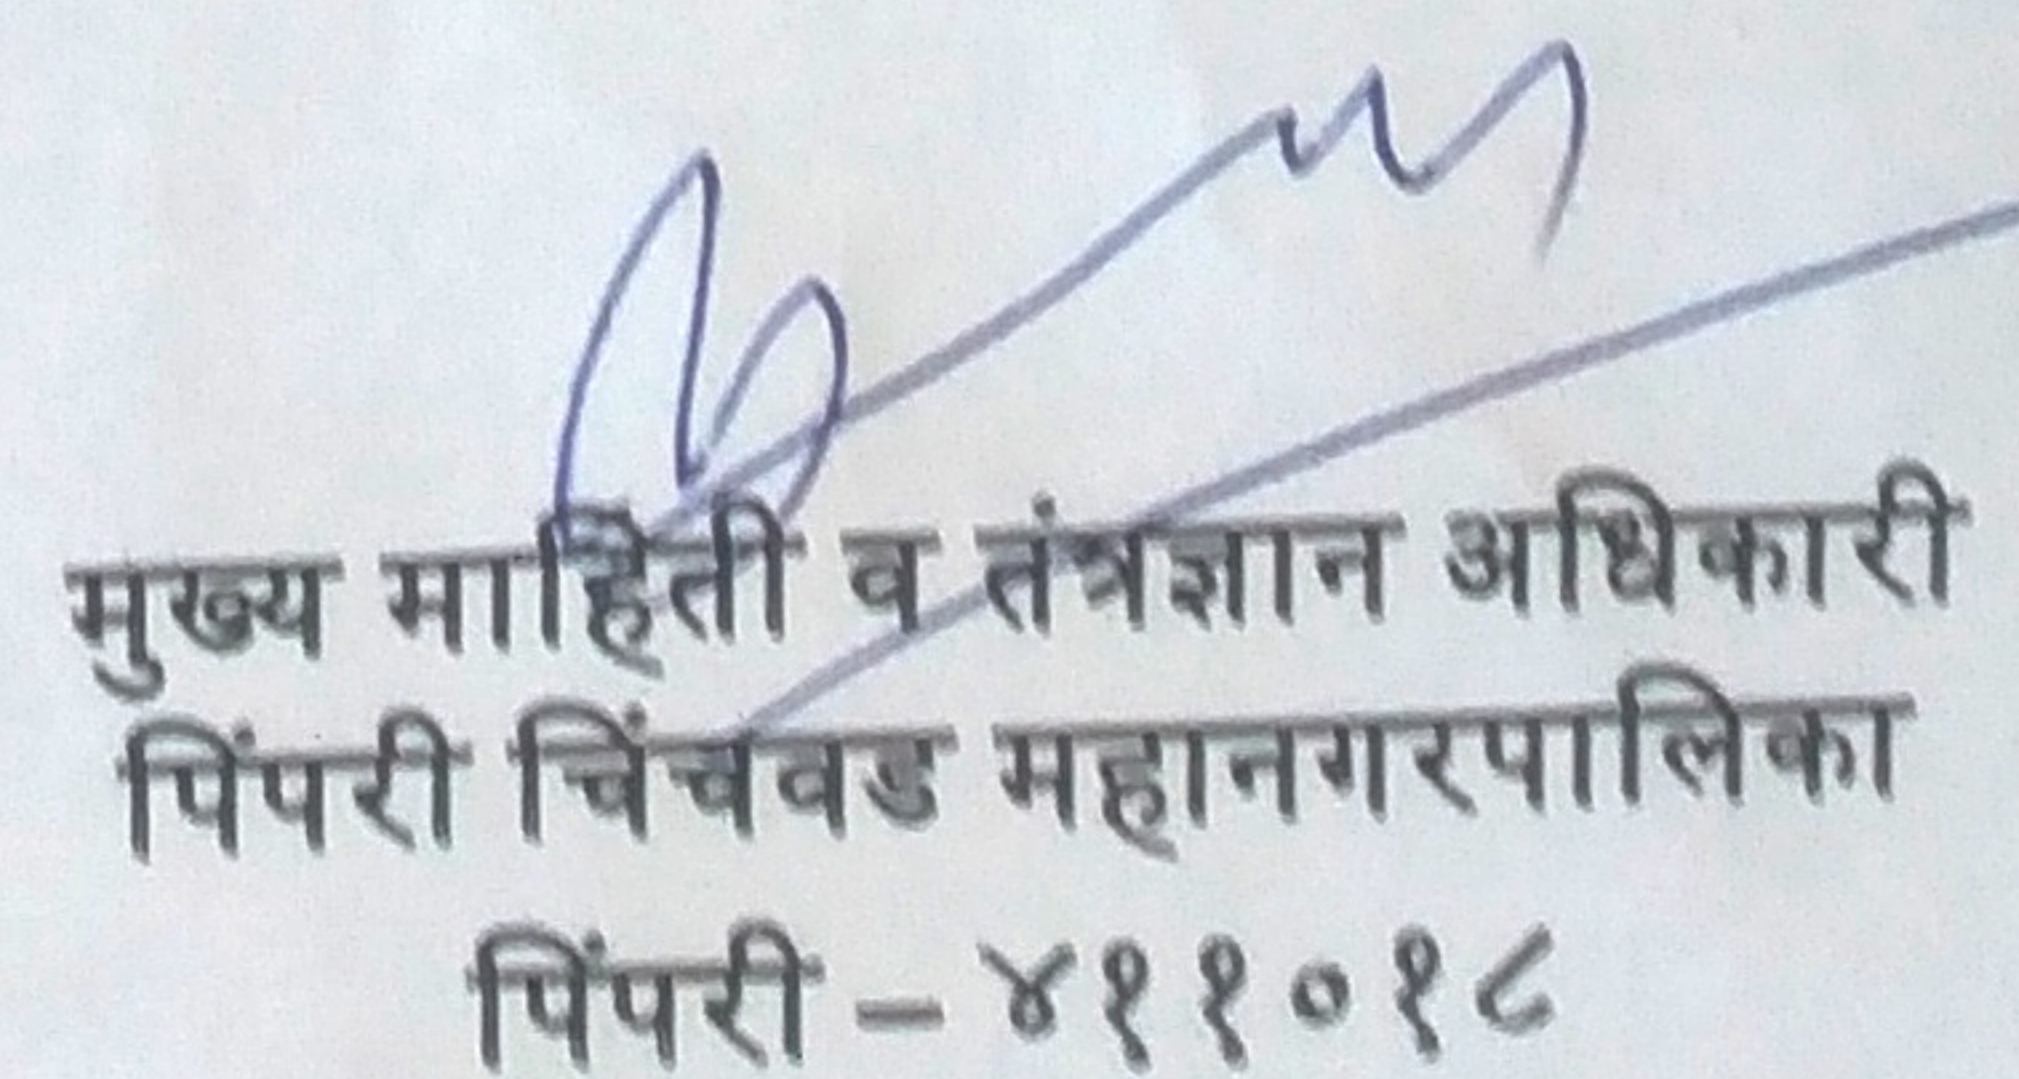 मुख्य माहिती व तंत्रज्ञान अधिकारी
पिंपरी चिंचवड महानगरपालिका
पिंपरी – ४११०१८